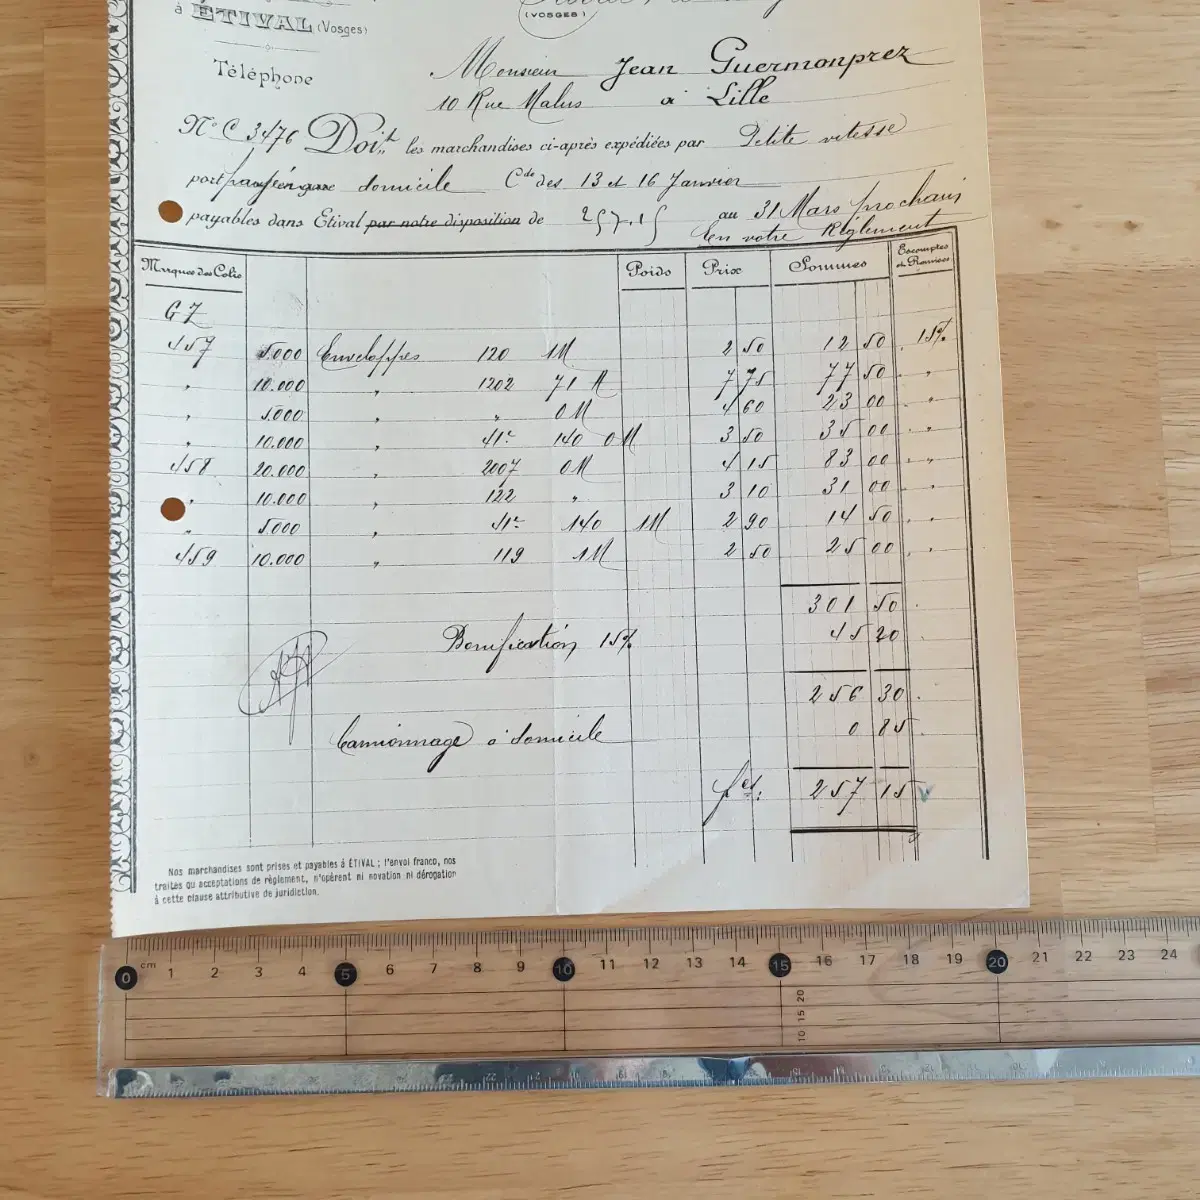 à ÉTIVAL (Vosges)
(VOSGES)
Téléphone
Monsieur Jean Guermonprez
10 Rue Malus à Lille
N° C 3476 Doit les marchandises ci-après expédiées par Petite vitesse
port domicile Cde des 13 et 16 Janvier
payables dans Etival par notre disposition de 257.15 au 31 Mars prochain
En votre Règlement
Marques des Colis Poids Prix Sommes Escomptes et Remises
G Z
457 5.000 Enveloppes 120 1M 2 50 12 50 15%
" 10.000 " 1202 71 M 7 75 77 50 "
" 5.000 " " 0M 4 60 23 00 "
" 10.000 " 41c 140 0M 3 50 35 00 "
458 20.000 " 2007 0M 4 15 83 00 "
" 10.000 " 122 " 3 10 31 00 "
" 5.000 " 41c 140 1M 2 90 14 50 "
459 10.000 " 119 1M 2 50 25 00 "
301 50
Bonification 15% 45 20
256 30
Camionnage à domicile 0 85
fcs: 257 15
Nos marchandises sont prises et payables à ÉTIVAL ; l'envoi franco, nos
traites ou acceptations de règlement, n'opèrent ni novation ni dérogation
à cette clause attributive de juridiction.
0 cm 1 2 3 4 5 6 7 8 9 10 11 12 13 14 15 16 17 18 19 20 21 22 23 24
10 15 20